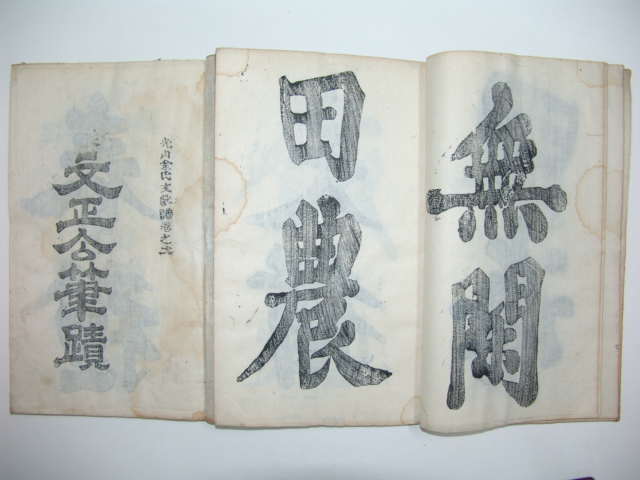 無
田農
光山金氏文獻卷之
文正公筆蹟